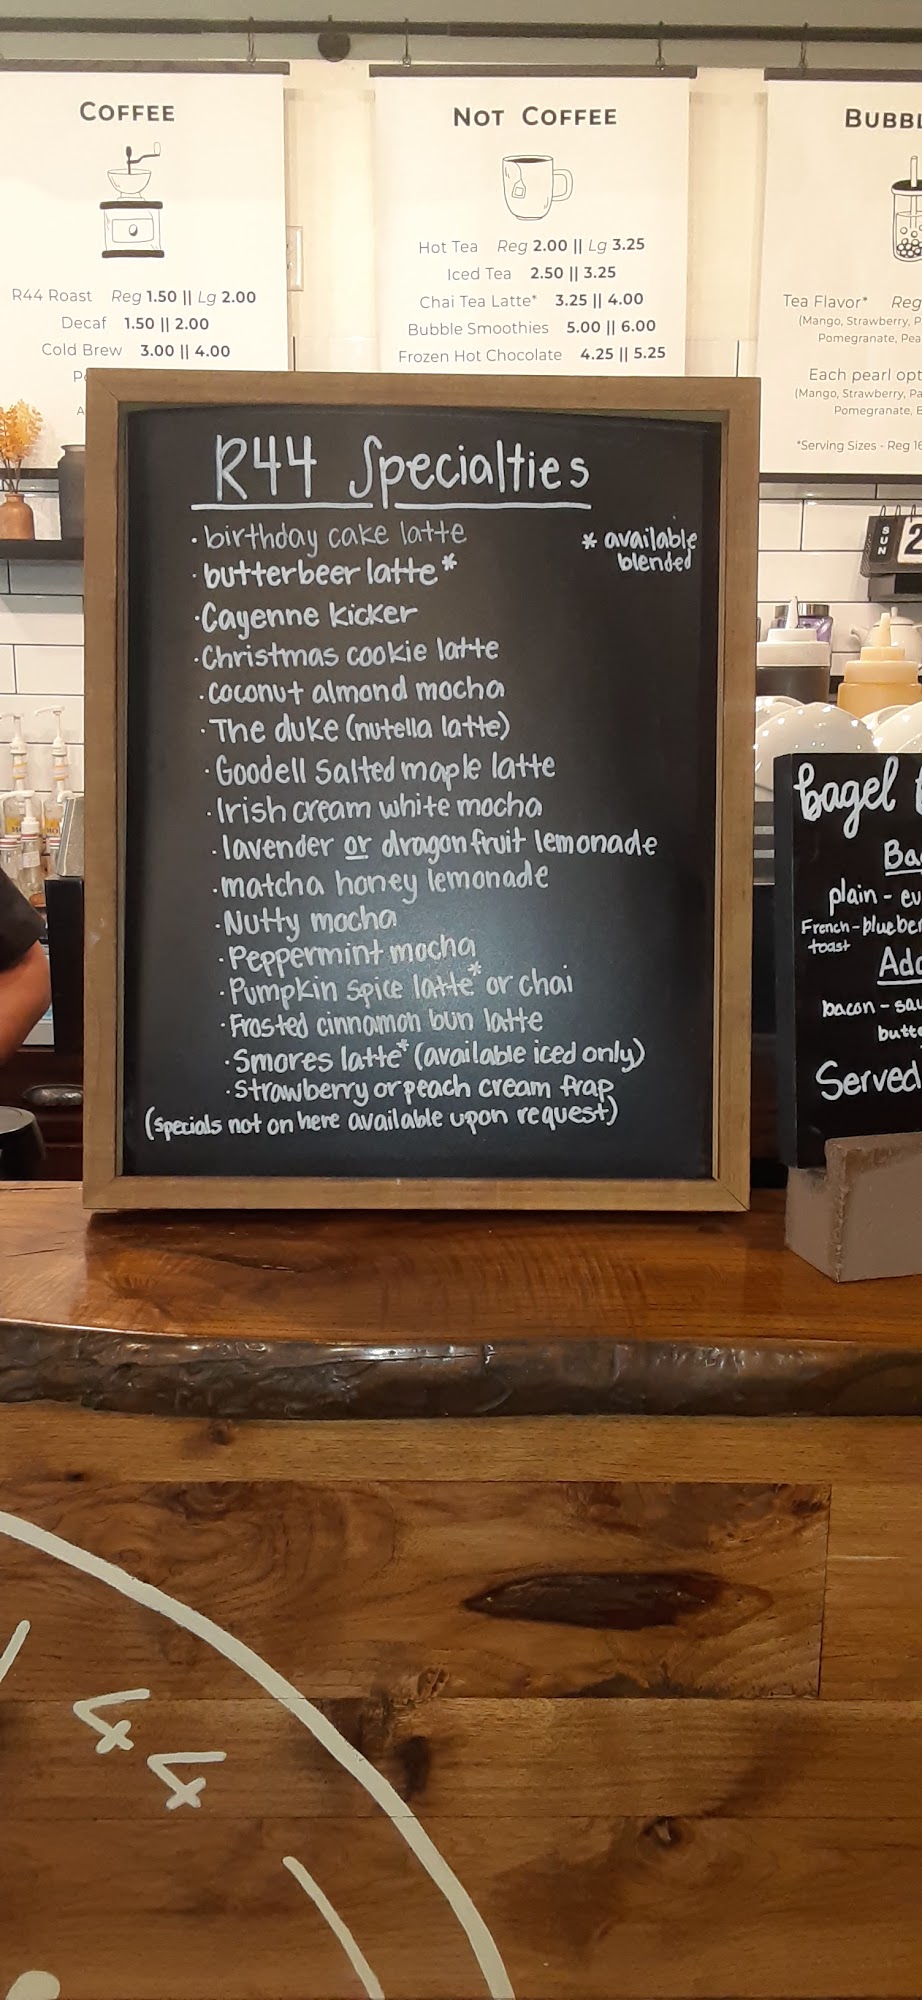 COFFEE
R44 Roast Reg 1.50 || Lg 2.00
Decaf 1.50 || 2.00
Cold Brew 3.00 || 4.00
NOT COFFEE
Hot Tea Reg 2.00 || Lg 3.25
Iced Tea 2.50 || 3.25
Chai Tea Latte* 3.25 || 4.00
Bubble Smoothies 5.00 || 6.00
Frozen Hot Chocolate 4.25 || 5.25
Tea Flavor* Reg
(Mango, Strawberry, P
Pomegranate, Pea
Each pearl opt
(Mango, Strawberry, Pa
Pomegranate, B
*Serving Sizes - Reg 16
SUN 2
R44 Specialties
* available
blended
· birthday cake latte
· butterbeer latte*
· Cayenne kicker
· Christmas cookie latte
· coconut almond mocha
· The duke (nutella latte)
· Goodell Salted maple latte
· Irish cream white mocha
· lavender or dragonfruit lemonade
· matcha honey lemonade
· Nutty mocha
· Peppermint mocha
· Pumpkin spice latte* or chai
· Frosted cinnamon bun latte
· Smores latte* (available iced only)
· Strawberry or peach cream frap
(specials not on here available upon request)
bagel
Ba
plain - ev
French - blueber
toast
Add
bacon - sau
butte
Served
44